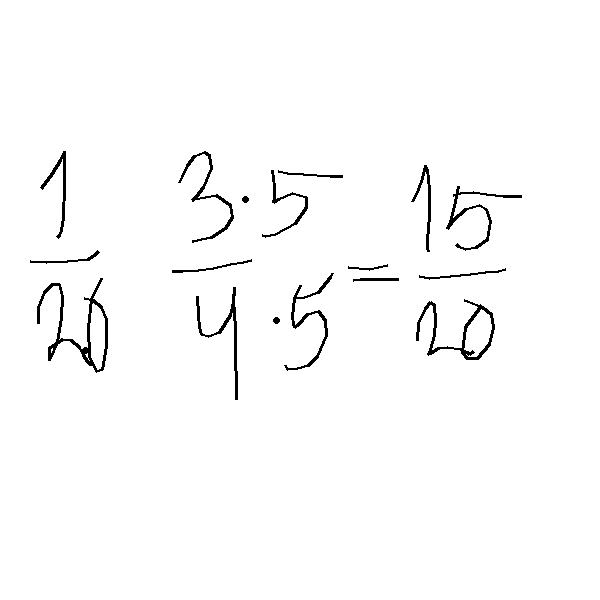 1/20 3·5/4·5 = 15/20